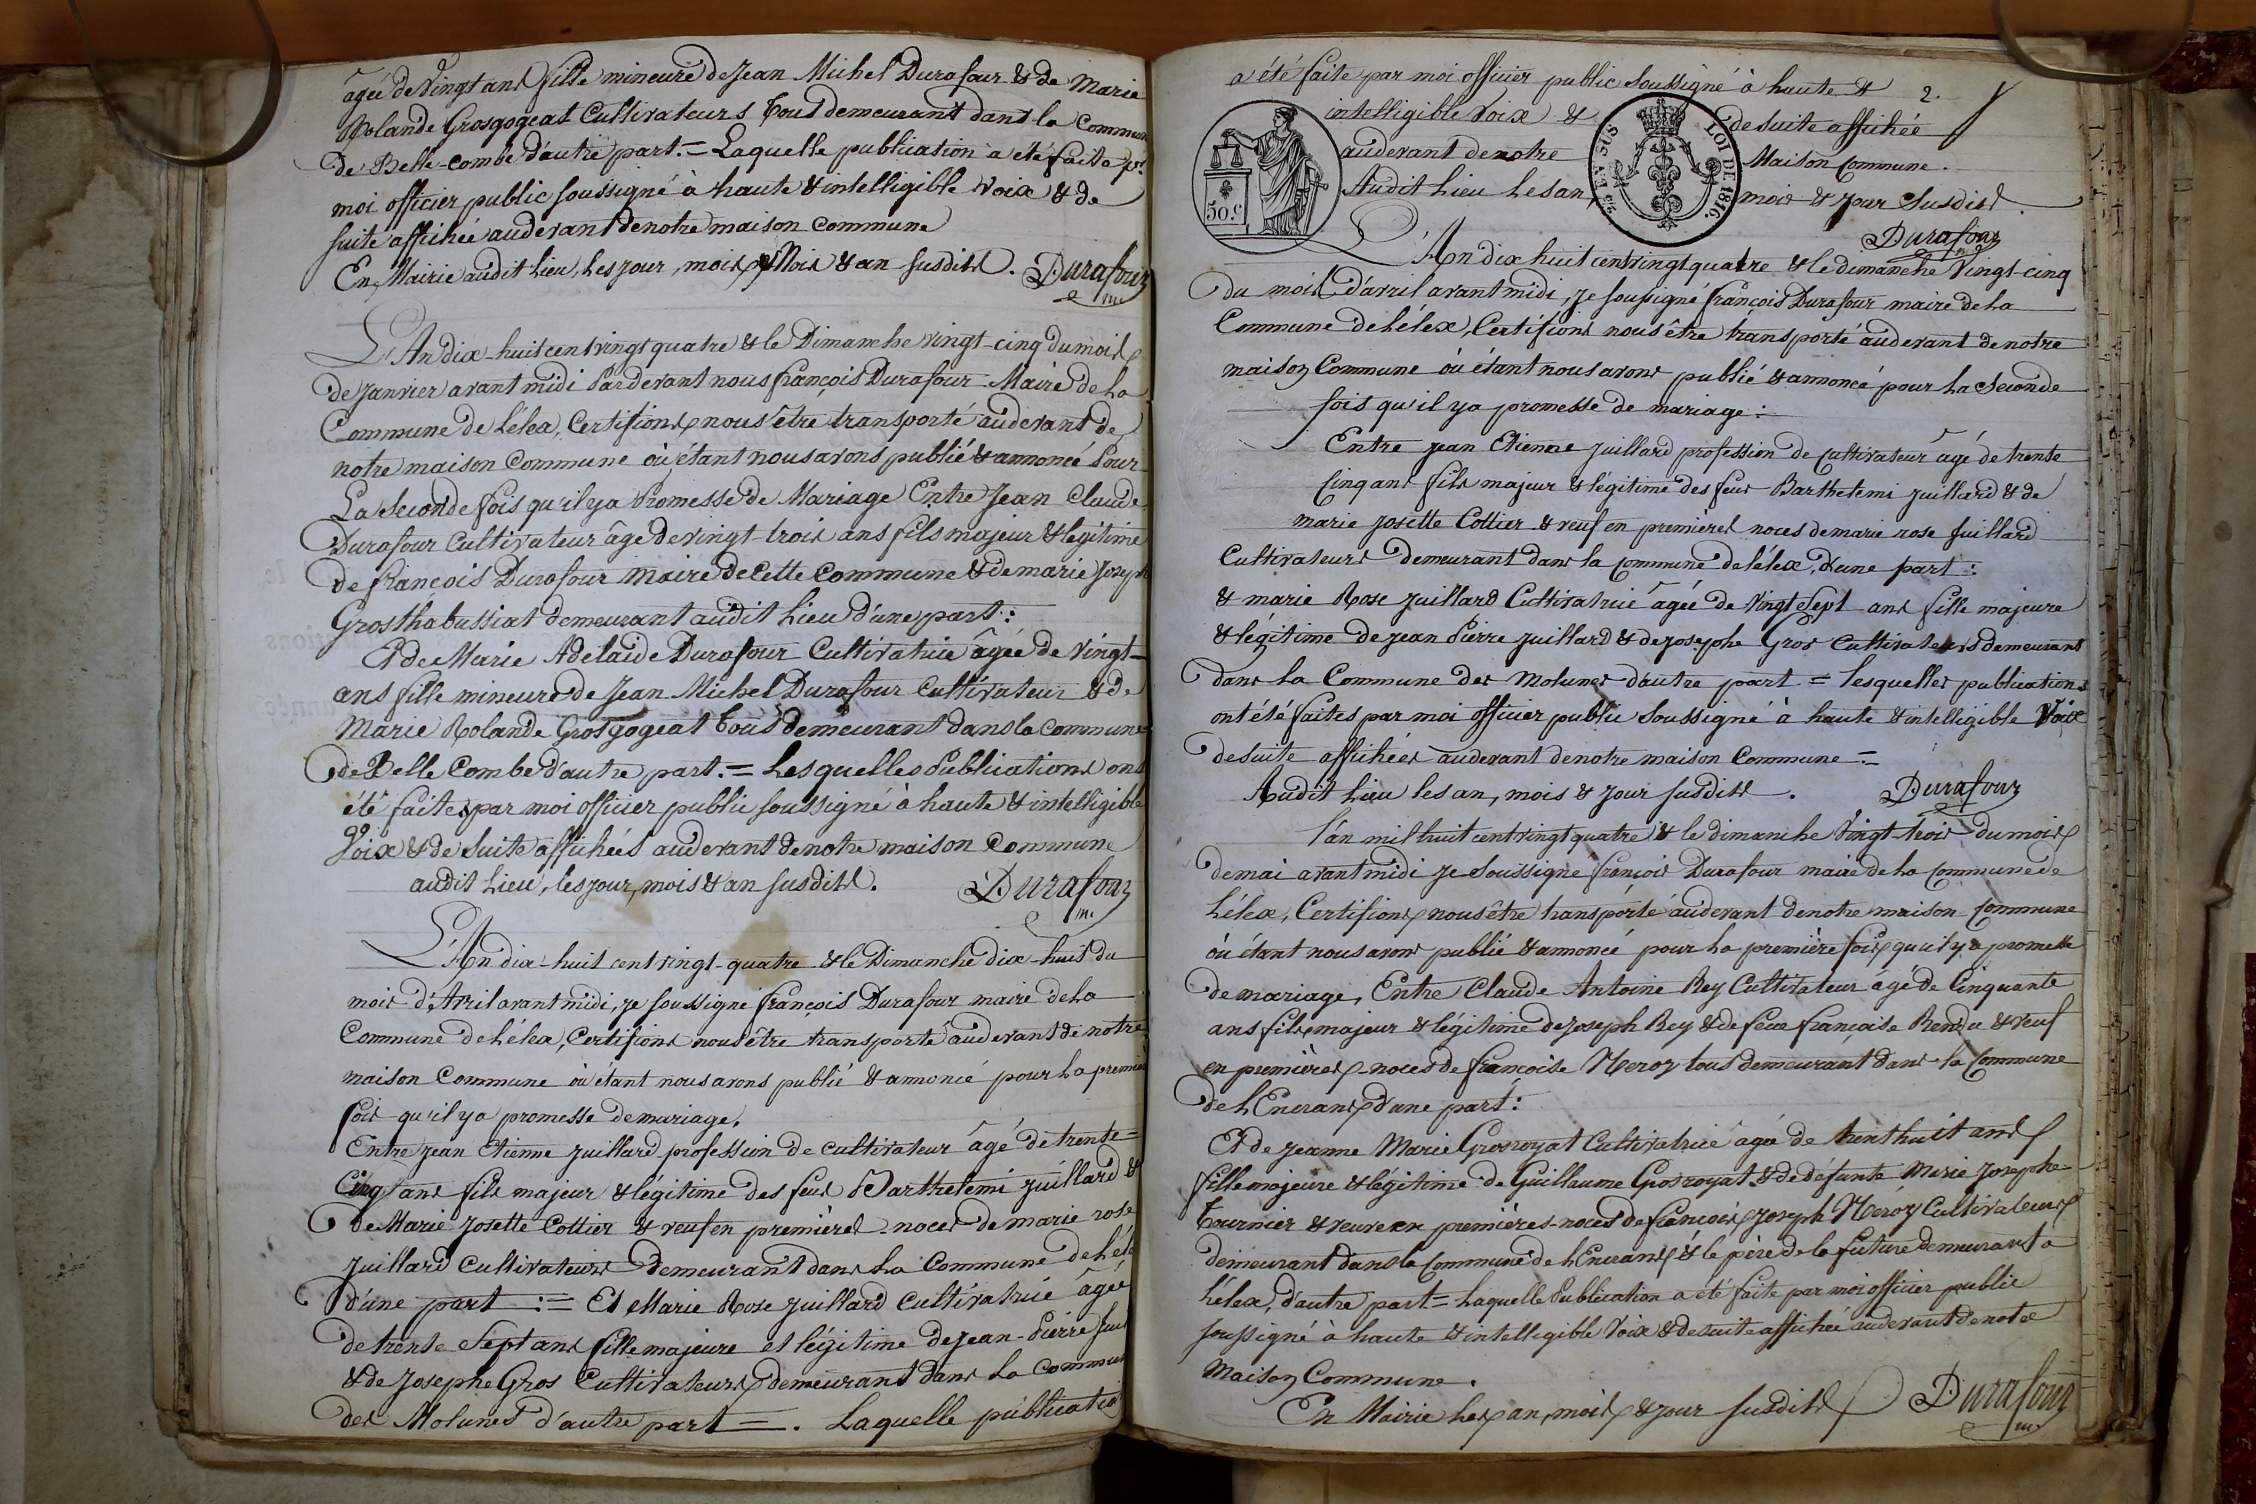 âgée de Vingt ans fille mineure de Jean Michel Durafour & de Marie
Rolande Grosgogeat Cultivateurs tous demeurant dans la Commune
de Belle-combe d'autre part. = Laquelle publication a été faite pr.
moi officier public soussigné à haute & intelligible voix & de
suite affichée audevant de notre maison commune
En Mairie audit Lieu, les jour, mois & an susdits. Durafour
m.
L'An dix-huit cent vingt quatre & le Dimanche vingt-cinq du mois
de Janvier avant midi Pardevant nous françois Durafour Maire de la
Commune de Lélex, Certifions nous être transporté audevant de
notre maison Commune où étant nous avons publié & annoncé Pour
La Seconde fois qu'il y a Promesse de Mariage Entre Jean Claude
Durafour Cultivateur âgé de vingt-trois ans fils majeur & légitime
de françois Durafour Maire de Cette Commune & de marie Joseph
Grosthabussiat demeurant audit Lieu d'une part :
Et de Marie Adelaide Durafour Cultivatrice âgée de vingt-
ans fille mineure de Jean-Michel Durafour Cultivateur & de
Marie Rolande Grosgogeat tous demeurant dans la commune
de Belle Combe d'autre part. = Lesquelles Publications ont
été faites par moi officier public soussigné à haute & intelligible
Voix & de Suite affichées audevant de notre maison Commune
audit Lieu, les jour, mois & an susdits. Durafour
m.
L'An dix-huit cent vingt-quatre & le Dimanche dix-huit du
mois d'Avril avant midi, je soussigné françois Durafour maire de la
Commune de Lélex, Certifions nous être transporté audevant de notre
maison Commune où étant nous avons publié & annoncé pour la premiè
fois qu'il y a promesse de mariage.
Entre Jean Etienne Juillard profession de cultivateur âgé de trente=
Cinq ans fils majeur & légitime des feus Barthelemi Juillard &
de Marie Josette Cottier & veuf en premières noces de marie rose
Juillard Cultivateurs Demeurant dans la Commune de Lélé
d'une part := Et Marie Rose Juillard Cultivatrice âgée
de trente Sept ans fille majeure et légitime de Jean-Pierre Jui
& de Josephe Gros Cultivateurs demeurant dans la Commun
des Molunes d'autre part =. Laquelle publicatio
a été faite par moi officier public soussigné à haute & 2.
intelligible Voix & de suite affichée
audevant de notre Maison Commune.
Audit Lieu Les an mois & jour Susdits.
Durafour
50.C
LOI DE 1816.
L'An dix huit cent vingt quatre & le dimanche Vingt-cinq
du mois d'avril avant midi, je soussigné françois Durafour maire de la
Commune de Lélex, Certifions nous être transporté audevant de notre
maison Commune où étant nous avons publié & annoncé pour la Seconde
fois qu'il y a promesse de mariage :
Entre Jean Etienne Juillard profession de Cultivateur âgé de trente
Cinq ans fils majeur & légitime des feus Barthelemi Juillard & de
marie Josette Cottier & veuf en premières noces de marie rose Juillard
Cultivateurs demeurant dans la commune de Lélex, d'une part :
& marie Rose Juillard Cultivatrice âgée de Vingt Sept ans fille majeure
& légitime de Jean Pierre Juillard & de Josephe Gros Cultivateurs demeurans
dans la Commune des Molunes d'autre part = lesquelles publications
ont été faites par moi officier public Soussigné à haute & intelligible Voix
de suite affichées audevant de notre maison Commune =
Audit Lieu les an, mois & jour susdits. Durafour
l'an mil huit cent vingt quatre & le dimanche Vingt-trois du mois
de mai avant midi je Soussigné françois Durafour maire de la Commune de
Lélex, Certifions nous être transporté audevant de notre maison Commune
où étant nous avons publié & annoncé pour la première fois qu'il y a promesse
de mariage, Entre Claude Antoine Rey Cultivateur âgé de Cinquante
ans fils majeur & légitime de Joseph Rey & de feue françoise Rendu & veuf
en premières noces de françoise Néroz tous demeurant dans la Commune
de L'Encrans d'une part :
Et de Jeanne Marie Grosroyat Cultivatrice âgée de trent huit ans
fille majeure & légitime de Guillaume Grosroyat & de défunte Marie Josephe
Tournier & veuve en premières noces de françois Joseph Néroz Cultivateurs
demeurant dans la Commune de L'Encrans & le père de la future demeurant a
Lélex, d'autre part = Laquelle Publication a été faite par moi officier public
soussigné à haute & intelligible Voix & de suite affichée audevant de notre
Maison Commune.
En Mairie Les an, mois & jour susdits Durafour
m.